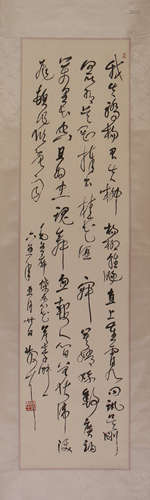 我失骄杨君失柳杨柳轻飏直上重霄九问讯吴刚
何所有吴刚捧出桂花酒寂寞嫦娥舒广袖
万里长空且为忠魂舞忽报人间曾伏虎泪
飞顿作倾盆雨
毛主席蝶恋花答李淑一